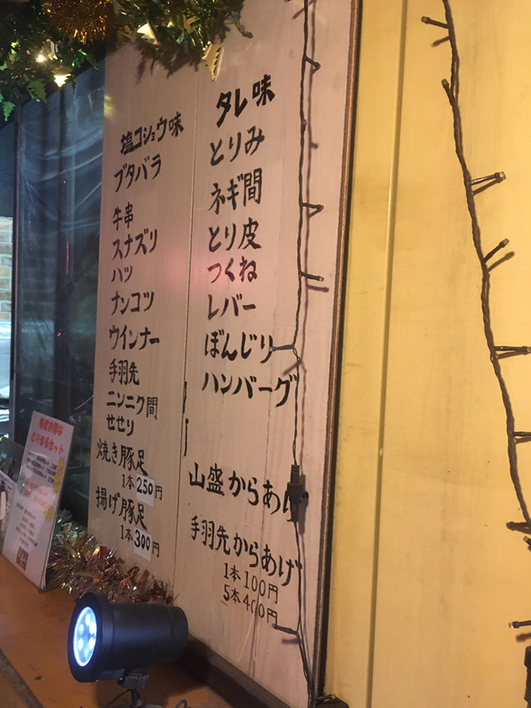 タレ味
とりみ
ネギ間
とり皮
つくね
レバー
ぼんじり
ハンバーグ
山盛からあげ
手羽先からあげ
1本100円
5本400円
塩コショウ味
ブタバラ
牛串
スナズリ
ハツ
ナンコツ
ウインナー
手羽先
ニンニク間
せせり
焼き豚足
1本250円
揚げ豚足
1本300円